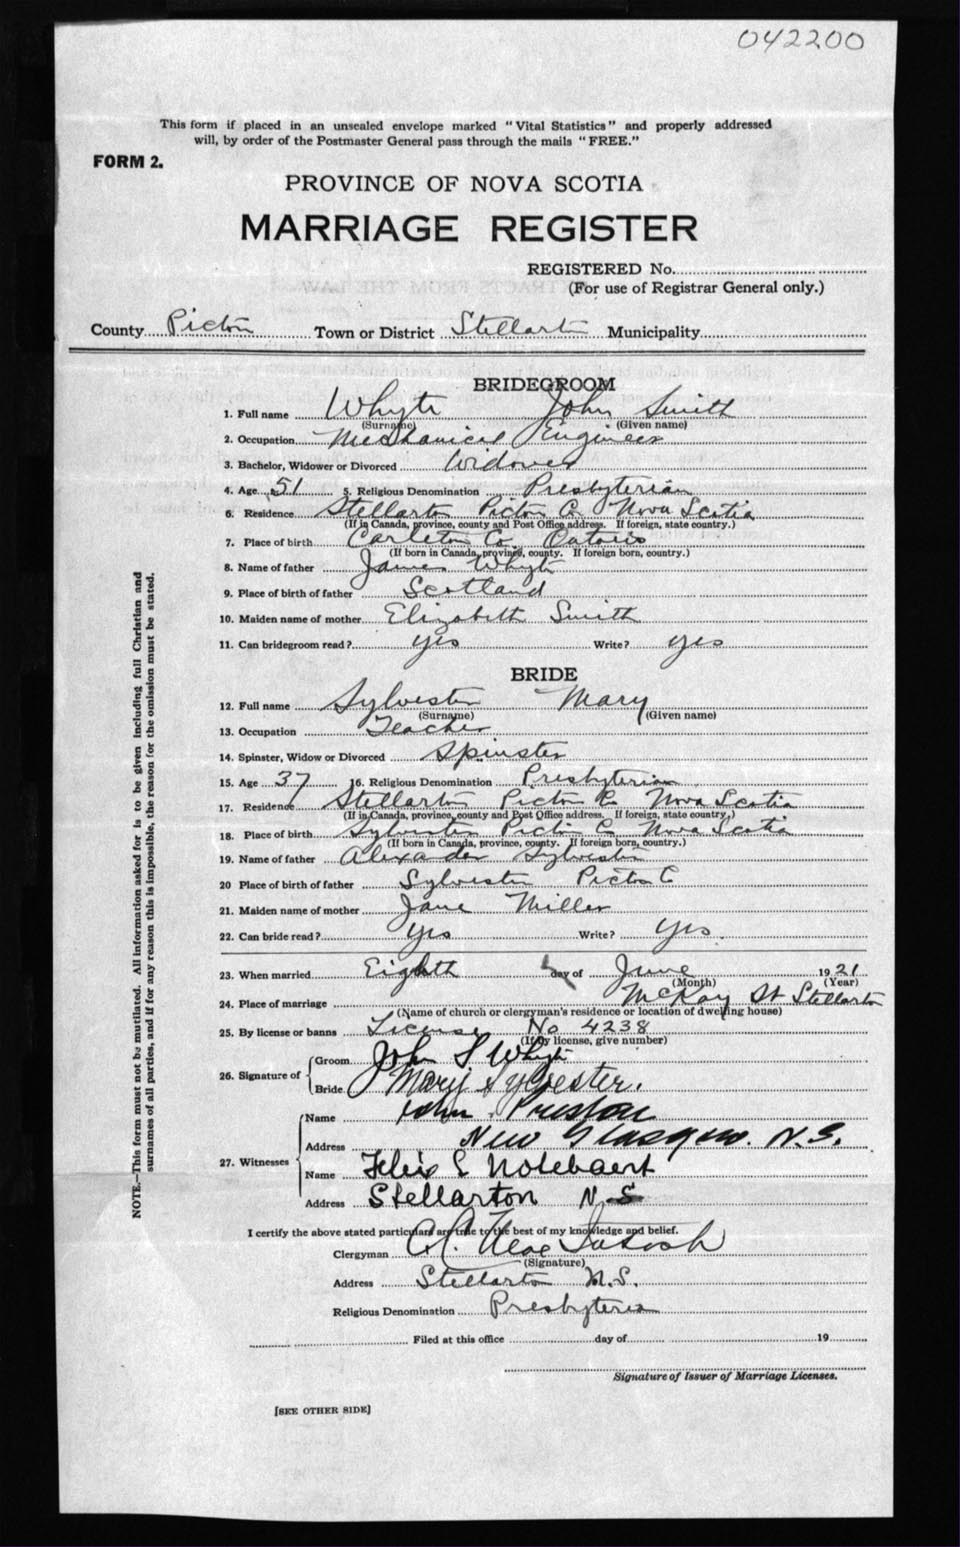 042200
This form if placed in an unsealed envelope marked "Vital Statistics" and properly addressed
will, by order of the Postmaster General pass through the mails "FREE."
FORM 2.
PROVINCE OF NOVA SCOTIA
MARRIAGE REGISTER
REGISTERED No.
(For use of Registrar General only.)
County Pictou Town or District Stellarton Municipality
BRIDEGROOM
1. Full name Whyte John Smith
(Surname) (Given name)
2. Occupation Mechanical Engineer
3. Bachelor, Widower or Divorced Widower
4. Age 51 5. Religious Denomination Presbyterian
6. Residence Stellarton Pictou Co Nova Scotia
(If in Canada, province, county and Post Office address. If foreign, state country.)
7. Place of birth Carleton Co. Ontario
(If born in Canada, province, county. If foreign born, country.)
8. Name of father James Whyte
9. Place of birth of father Scotland
10. Maiden name of mother Elizabeth Smith
11. Can bridegroom read? yes Write? yes
BRIDE
12. Full name Sylvester Mary
(Surname) (Given name)
13. Occupation Teacher
14. Spinster, Widow or Divorced Spinster
15. Age 37 16. Religious Denomination Presbyterian
17. Residence Stellarton Pictou Co Nova Scotia
(If in Canada, province, county and Post Office address. If foreign, state country.)
18. Place of birth Sylvester Pictou Co Nova Scotia
(If born in Canada, province, county. If foreign born, country.)
19. Name of father Alexander Sylvester
20 Place of birth of father Sylvester Pictou C
21. Maiden name of mother Jane Miller
22. Can bride read? yes Write? yes.
23. When married Eighth day of June 1921
(Month) (Year)
24. Place of marriage McKay St Stellarton
(Name of church or clergyman's residence or location of dwelling house)
25. By license or banns License No 4238
(If by license, give number)
26. Signature of Groom John S Whyte
Bride Mary Sylvester.
27. Witnesses Name John Preston
Address New Glasgow. N.S.
Name Felix S Notebaert
Address Stellarton N S
I certify the above stated particulars are true to the best of my knowledge and belief.
Clergyman A.
(Signature)
Address Stellarton N.S.
Religious Denomination Presbyterian
Filed at this office day of 19
Signature of Issuer of Marriage Licenses.
[SEE OTHER SIDE]
NOTE.—This form must not be mutilated. All information asked for is to be given including full Christian and
surnames of all parties, and if for any reason this is impossible, the reason for the omission must be stated.